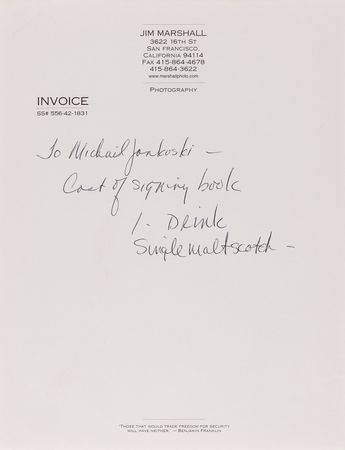 JIM MARSHALL
3622 16TH ST
SAN FRANCISCO,
CALIFORNIA 94114
FAX 415-864-4678
415-864-3622
www.marshallphoto.com
PHOTOGRAPHY
INVOICE
SS# 556-42-1831
To Michail Jankoski –
Cost of signing book
1. DRINK
Single malt scotch –
"THOSE THAT WOULD TRADE FREEDOM FOR SECURITY
WILL HAVE NEITHER." — BENJAMIN FRANKLIN